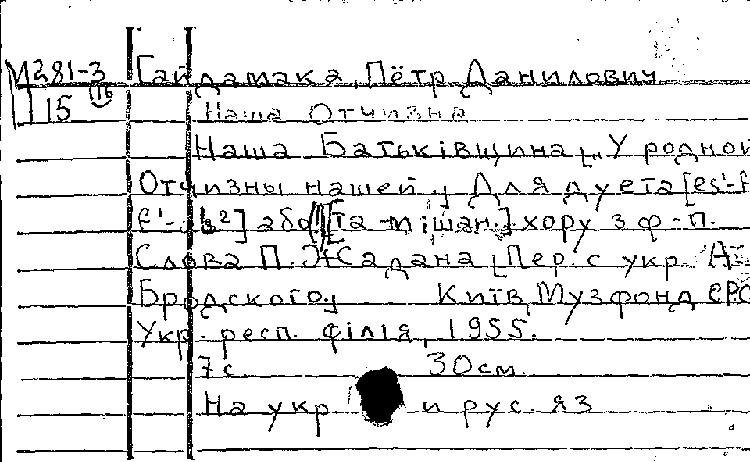 М281-3 Гайдамака, Пётр Данилович
15 Наша Отчизна
Наша Батьківщина ["У родной
Отчизны нашей"] Для дуета
або [та мішан.] хору з ф-п.
Слова П. Жадана [Пер. с укр. А.
Бродского] Київ, Музфонд СРС
Укр. респ. філія, 1955.
7 с. 30 см.
На укр и рус. яз